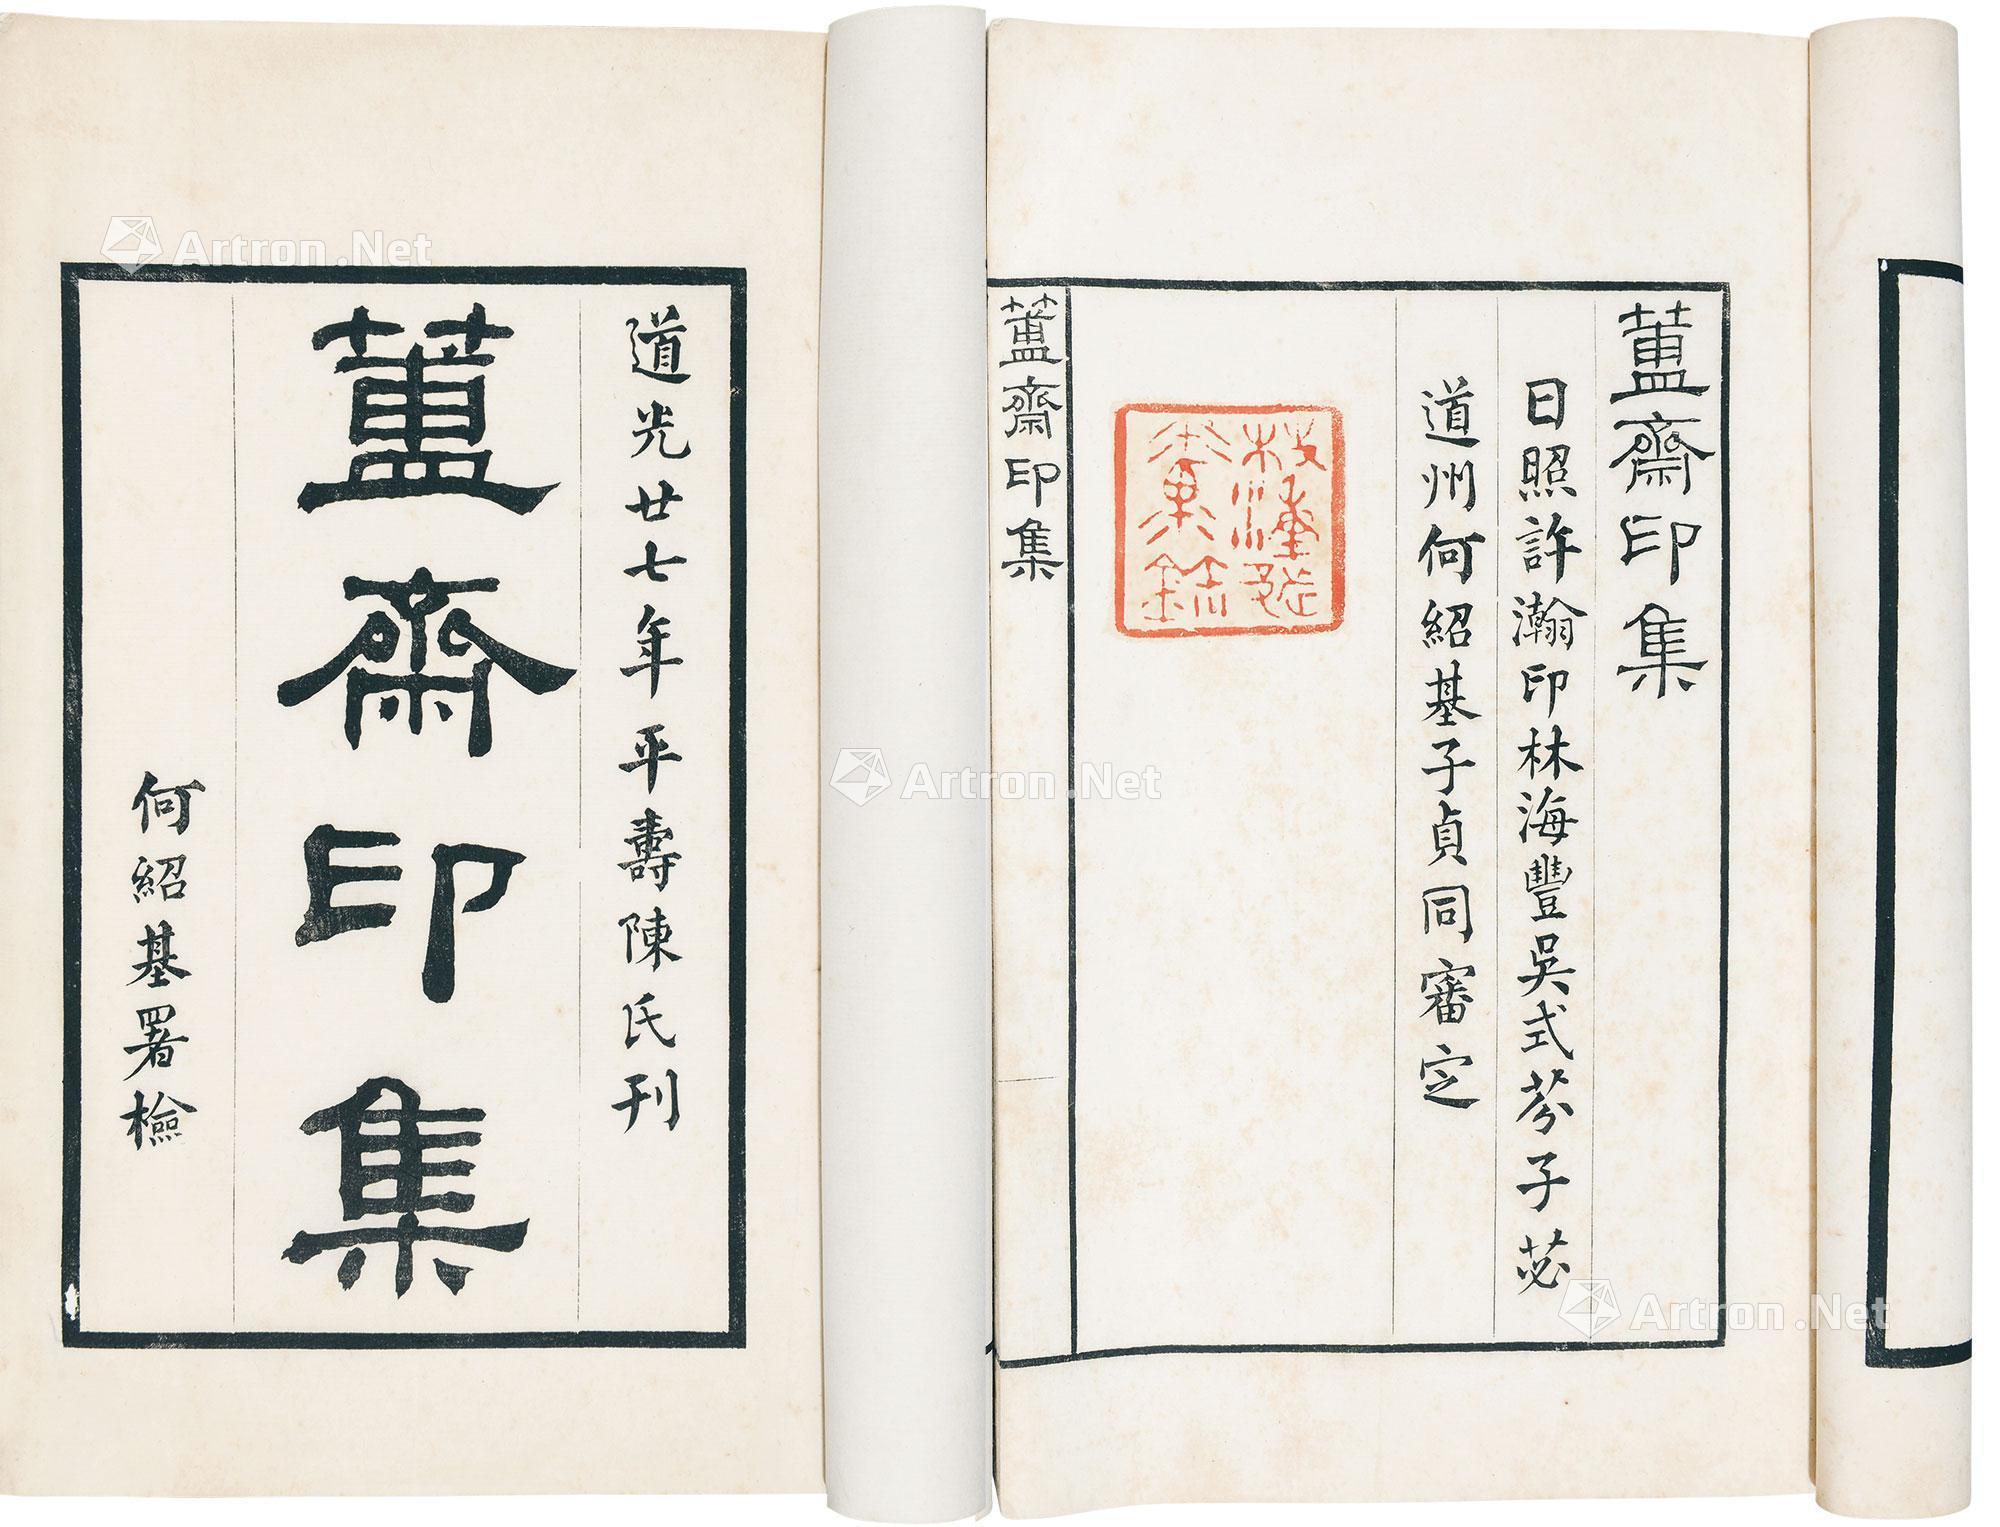 簠齋印集
日照許瀚印林海豐吳式芬子苾
道州何紹基子貞同審定
簠齋印集
道光廿七年平壽陳氏刊
簠齋印集
何紹基署檢
Artron.Net
Artron.Net
Artron.Net